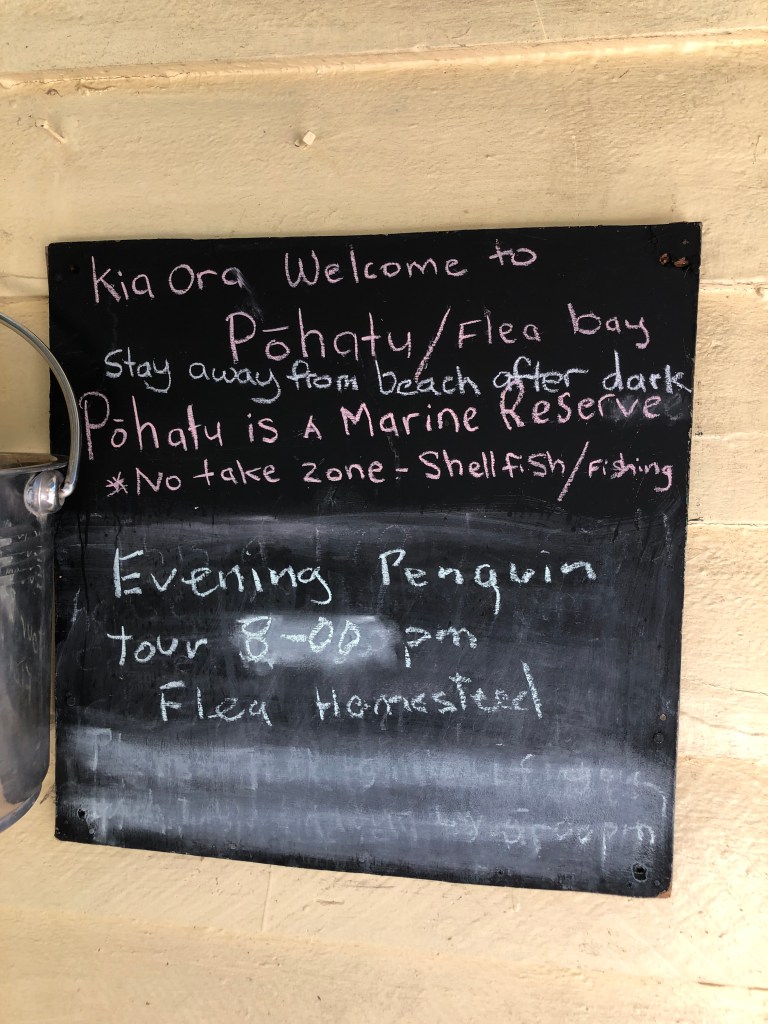 Kia Ora Welcome to
Pōhatu/Flea bay
Stay away from beach after dark
Pōhatu is A Marine Reserve
*No take zone - Shellfish/Fishing
Evening Penguin
tour 8-00 pm
Flea Homestead